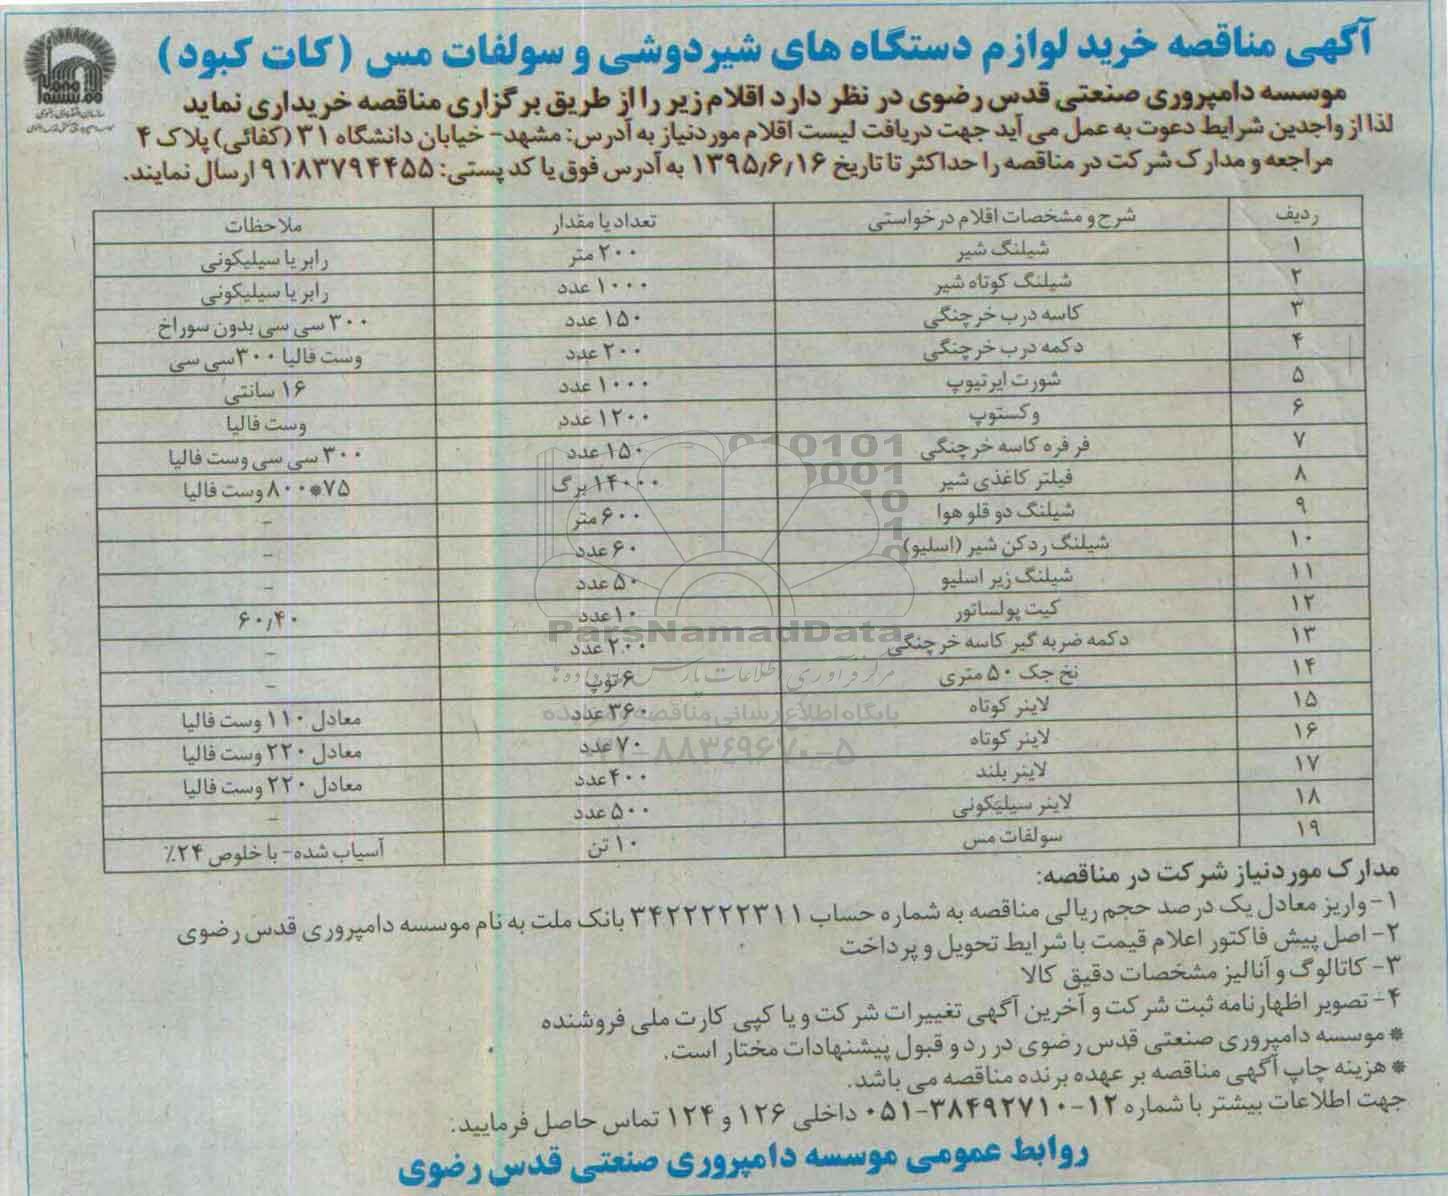 آگهی مناقصه خرید لوازم دستگاه های شیردوشی و سولفات مس (کات کبود)
موسسه دامپروری صنعتی قدس رضوی در نظر دارد اقلام زیر را از طریق برگزاری مناقصه خریداری نماید
لذا از واجدین شرایط دعوت به عمل می آید جهت دریافت لیست اقلام موردنیاز به آدرس: مشهد- خیابان دانشگاه ۳۱ (کفائی) پلاک ۴
مراجعه و مدارک شرکت در مناقصه را حداکثر تا تاریخ ۱۳۹۵٫۶٫۱۶ به آدرس فوق یا کد پستی: ۹۱۸۳۷۹۴۴۵۵ ارسال نمایند.
ردیف شرح و مشخصات اقلام درخواستی تعداد یا مقدار ملاحظات
۱ شیلنگ شیر ۲۰۰ متر رابر یا سیلیکونی
۲ شیلنگ کوتاه شیر ۱۰۰۰ عدد رابر یا سیلیکونی
۳ کاسه درب خرچنگی ۱۵۰ عدد ۳۰۰ سی سی بدون سوراخ
۴ دکمه درب خرچنگی ۲۰۰ عدد وست فالیا ۳۰۰ سی سی
۵ شورت ایرتیوپ ۱۰۰۰ عدد ۱۶ سانتی
۶ وکستوپ ۱۲۰۰ عدد وست فالیا
۷ فرفره کاسه خرچنگی ۱۵۰ عدد ۳۰۰ سی سی وست فالیا
۸ فیلتر کاغذی شیر ۱۴۰۰۰ برگ ۷۵*۸۰۰ وست فالیا
۹ شیلنگ دو قلو هوا ۶۰۰ متر -
۱۰ شیلنگ ردکن شیر (اسلیو) ۶۰ عدد -
۱۱ شیلنگ زیر اسلیو ۵۰ عدد -
۱۲ کیت پولساتور ۱۰ عدد ۶۰٫۴۰
۱۳ دکمه ضربه گیر کاسه خرچنگی ۲۰۰ عدد -
۱۴ نخ جک ۵۰ متری ۶ توپ -
۱۵ لاینر کوتاه ۳۶۰ عدد معادل ۱۱۰ وست فالیا
۱۶ لاینر کوتاه ۷۰ عدد معادل ۲۲۰ وست فالیا
۱۷ لاینر بلند ۴۰۰ عدد معادل ۲۲۰ وست فالیا
۱۸ لاینر سیلیکونی ۵۰۰ عدد -
۱۹ سولفات مس ۱۰ تن آسیاب شده- با خلوص ۲۴٪
مدارک موردنیاز شرکت در مناقصه:
۱- واریز معادل یک درصد حجم ریالی مناقصه به شماره حساب ۳۴۲۲۲۲۲۳۱۱ بانک ملت به نام موسسه دامپروری قدس رضوی
۲- اصل پیش فاکتور اعلام قیمت با شرایط تحویل و پرداخت
۳- کاتالوگ و آنالیز مشخصات دقیق کالا
۴- تصویر اظهارنامه ثبت شرکت و آخرین آگهی تغییرات شرکت و یا کپی کارت ملی فروشنده
* موسسه دامپروری صنعتی قدس رضوی در رد و قبول پیشنهادات مختار است.
* هزینه چاپ آگهی مناقصه بر عهده برنده مناقصه می باشد.
جهت اطلاعات بیشتر با شماره ۱۲-۳۸۴۹۲۷۱۰-۰۵۱ داخلی ۱۲۶ و ۱۲۴ تماس حاصل فرمایید.
روابط عمومی موسسه دامپروری صنعتی قدس رضوی
010101
0001
10
1
0
ParsNamadData
مرکز فرآوری اطلاعات پارس نماد داده ها
پایگاه اطلاع رسانی مناقصه
۸۸۳۴۹۶۷۰-۵